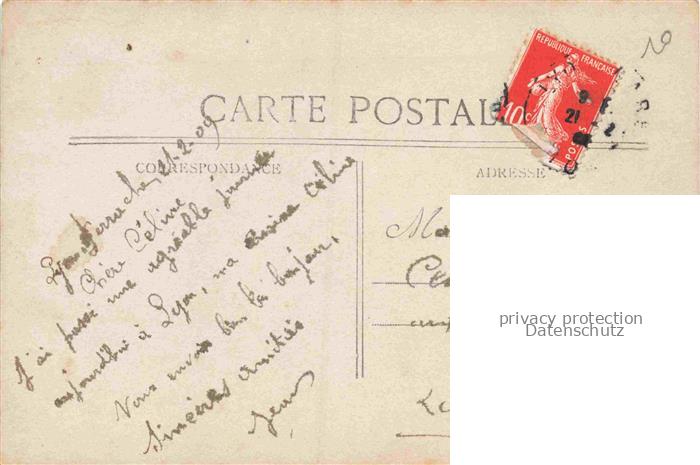 CARTE POSTALE
CORRESPONDANCE
ADRESSE
REPUBLIQUE FRANÇAISE
10c
POSTES
21 - 2
Lyon Perrache, 21-2-09
Chère Céline
J'ai passé une agréable journée
aujourd'hui à Lyon, ma cousine Célina
Vous envoie bien le bonjour,
Sincères amitiés
Jean
privacy protection
Datenschutz